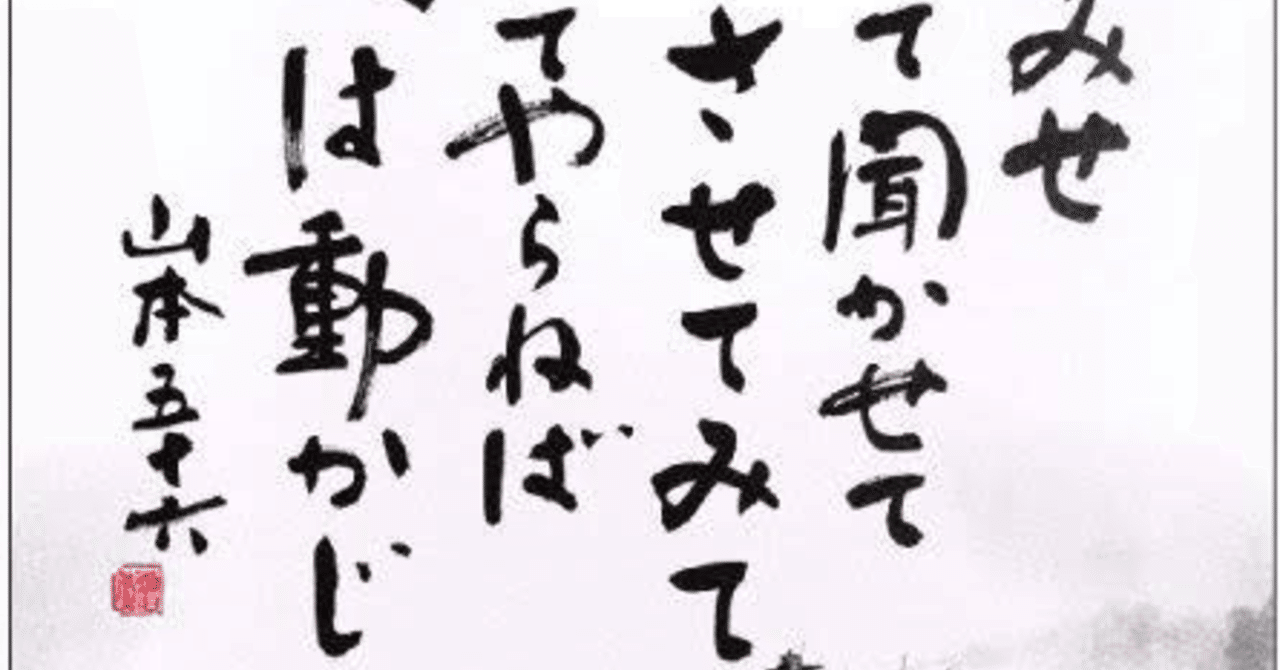 みせ
て聞かせて
させてみて
てやらねば
は動かじ
山本五十六